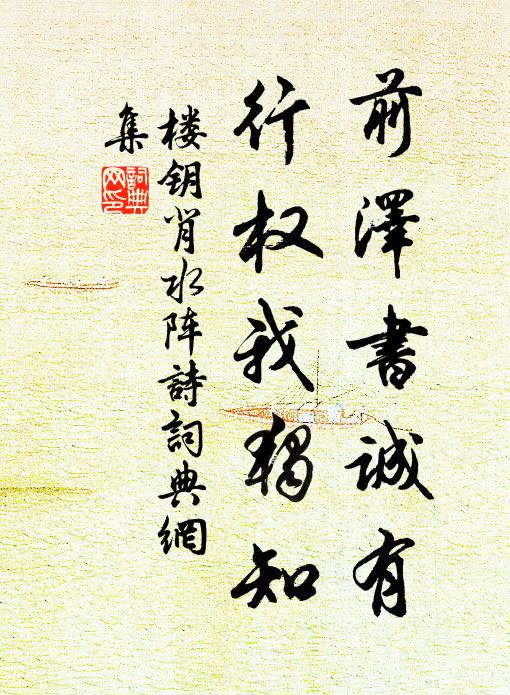 前澤書誠有
行权我獨知
楼钥肖水阵詩詞典網
集
詞典
网印